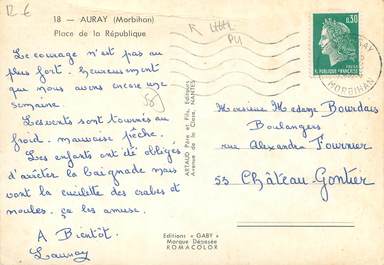 12 €
18 — AURAY (Morbihan)
Place de la République
Le courage n'est pas au
plus fort. heureusement
que nous avons encore une
semaine.
Les vents sont tournés au
froid. mauvaise pêche.
Les enfants ont été obligés
d'arrêter la baignade mais
vont la cueillette des crabes et
moules. ça les amuse.
A Bientôt.
Launay
ARTAUD Père et Fils, Editeurs
Avenue de la Close, NANTES
Editions « GABY »
Marque Déposée
ROMACOLOR
0,30
RÉPUBLIQUE FRANÇAISE
AURAY
MORBIHAN
Monsieur Madame Bourdais
Boulangers
rue Alexandre Fournier
53 Château Gontier